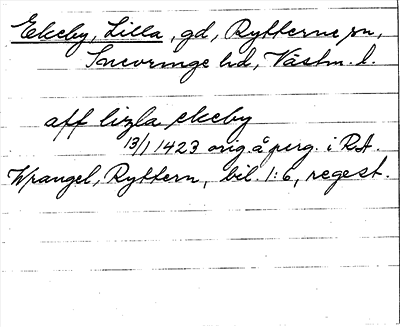 Ekeby, Lilla, gd, Rytterne sn,
Snevringe hd, Västm. l.
aff lizla ekeby
13/1 1423 orig. å perg. i RA.
Wrangel, Ryttern, bil. 1:6, regest.